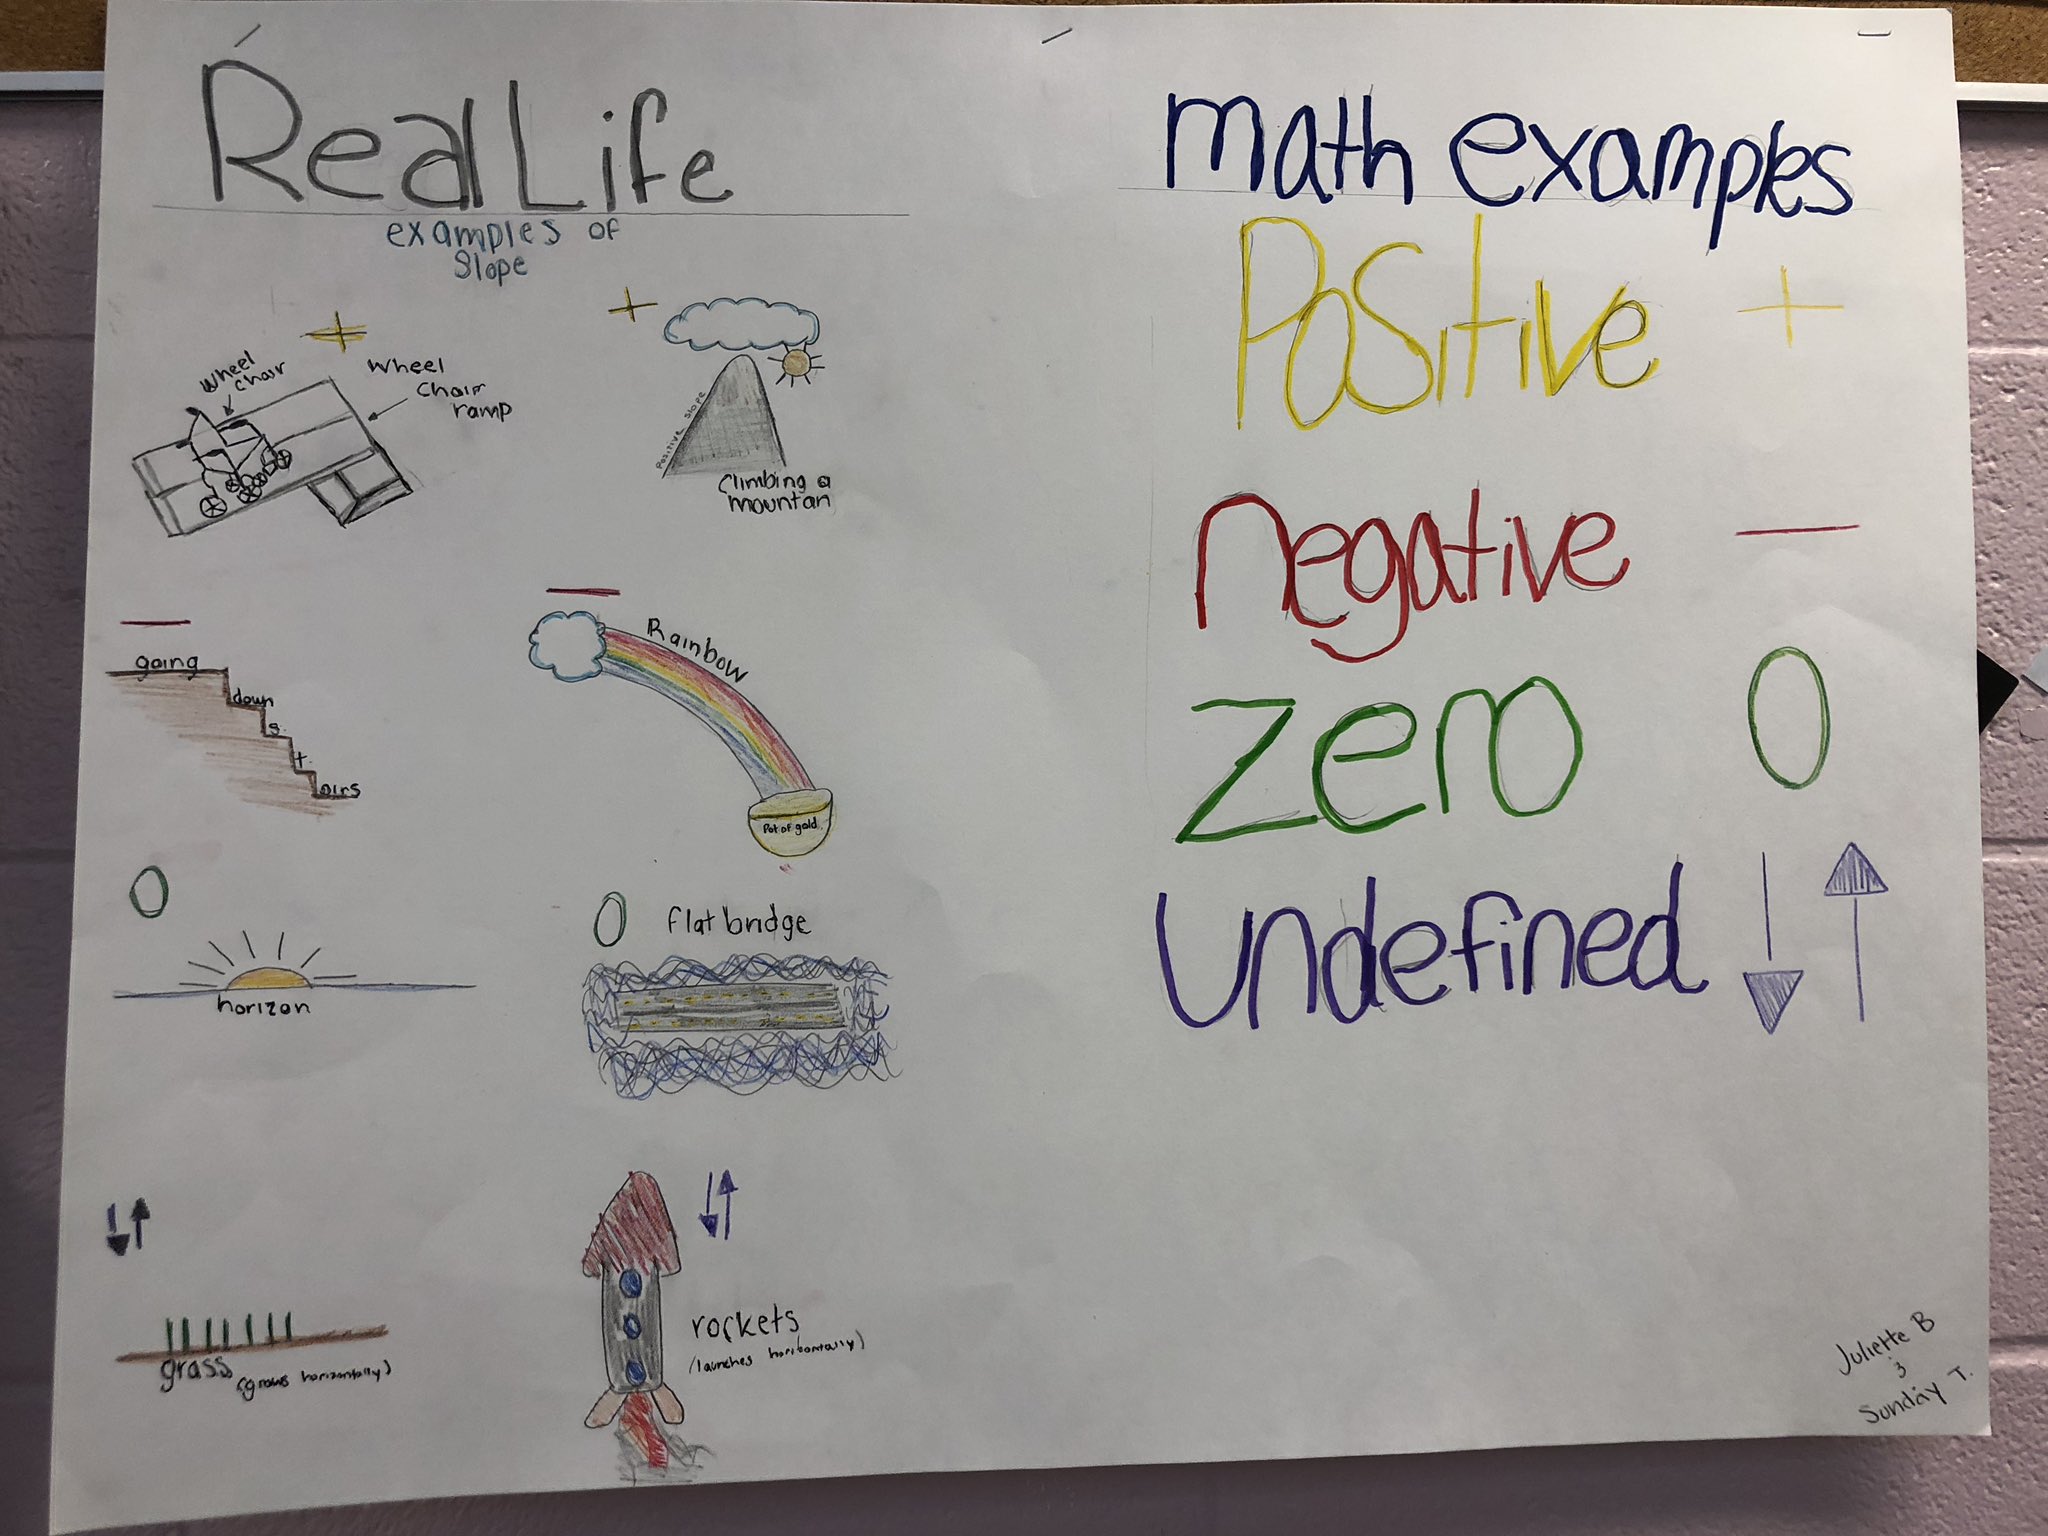 Real Life
examples of
Slope
+
+
Wheel
chair
Wheel
Chair
ramp
Positive Slope
Climbing a
mountan
—
—
going
down
s
t
airs
Rainbow
Pot of gold
0
0
flat bridge
horizon
grass (grows horizontally)
rockets
(launches horibontally)
math examples
Positive +
negative —
zero 0
undefined
Juliette B
&
Sunday T.